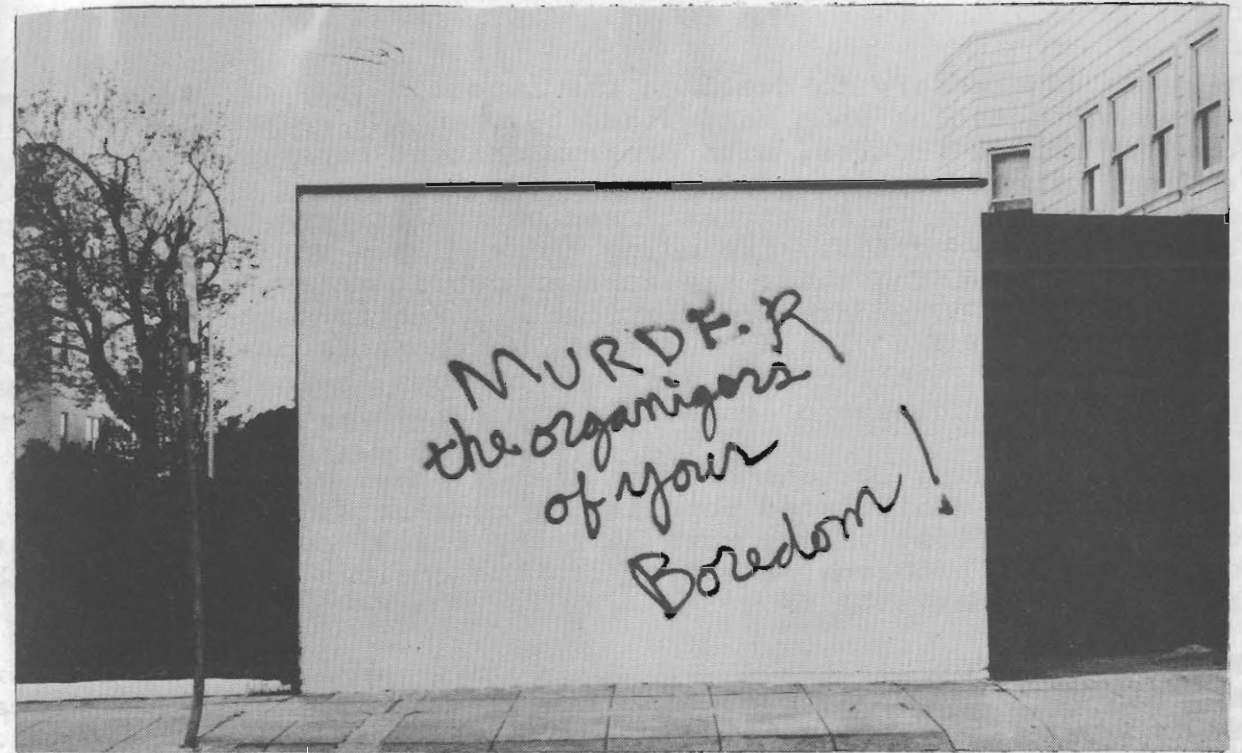 MURDER
the organizors
of your
Boredom!